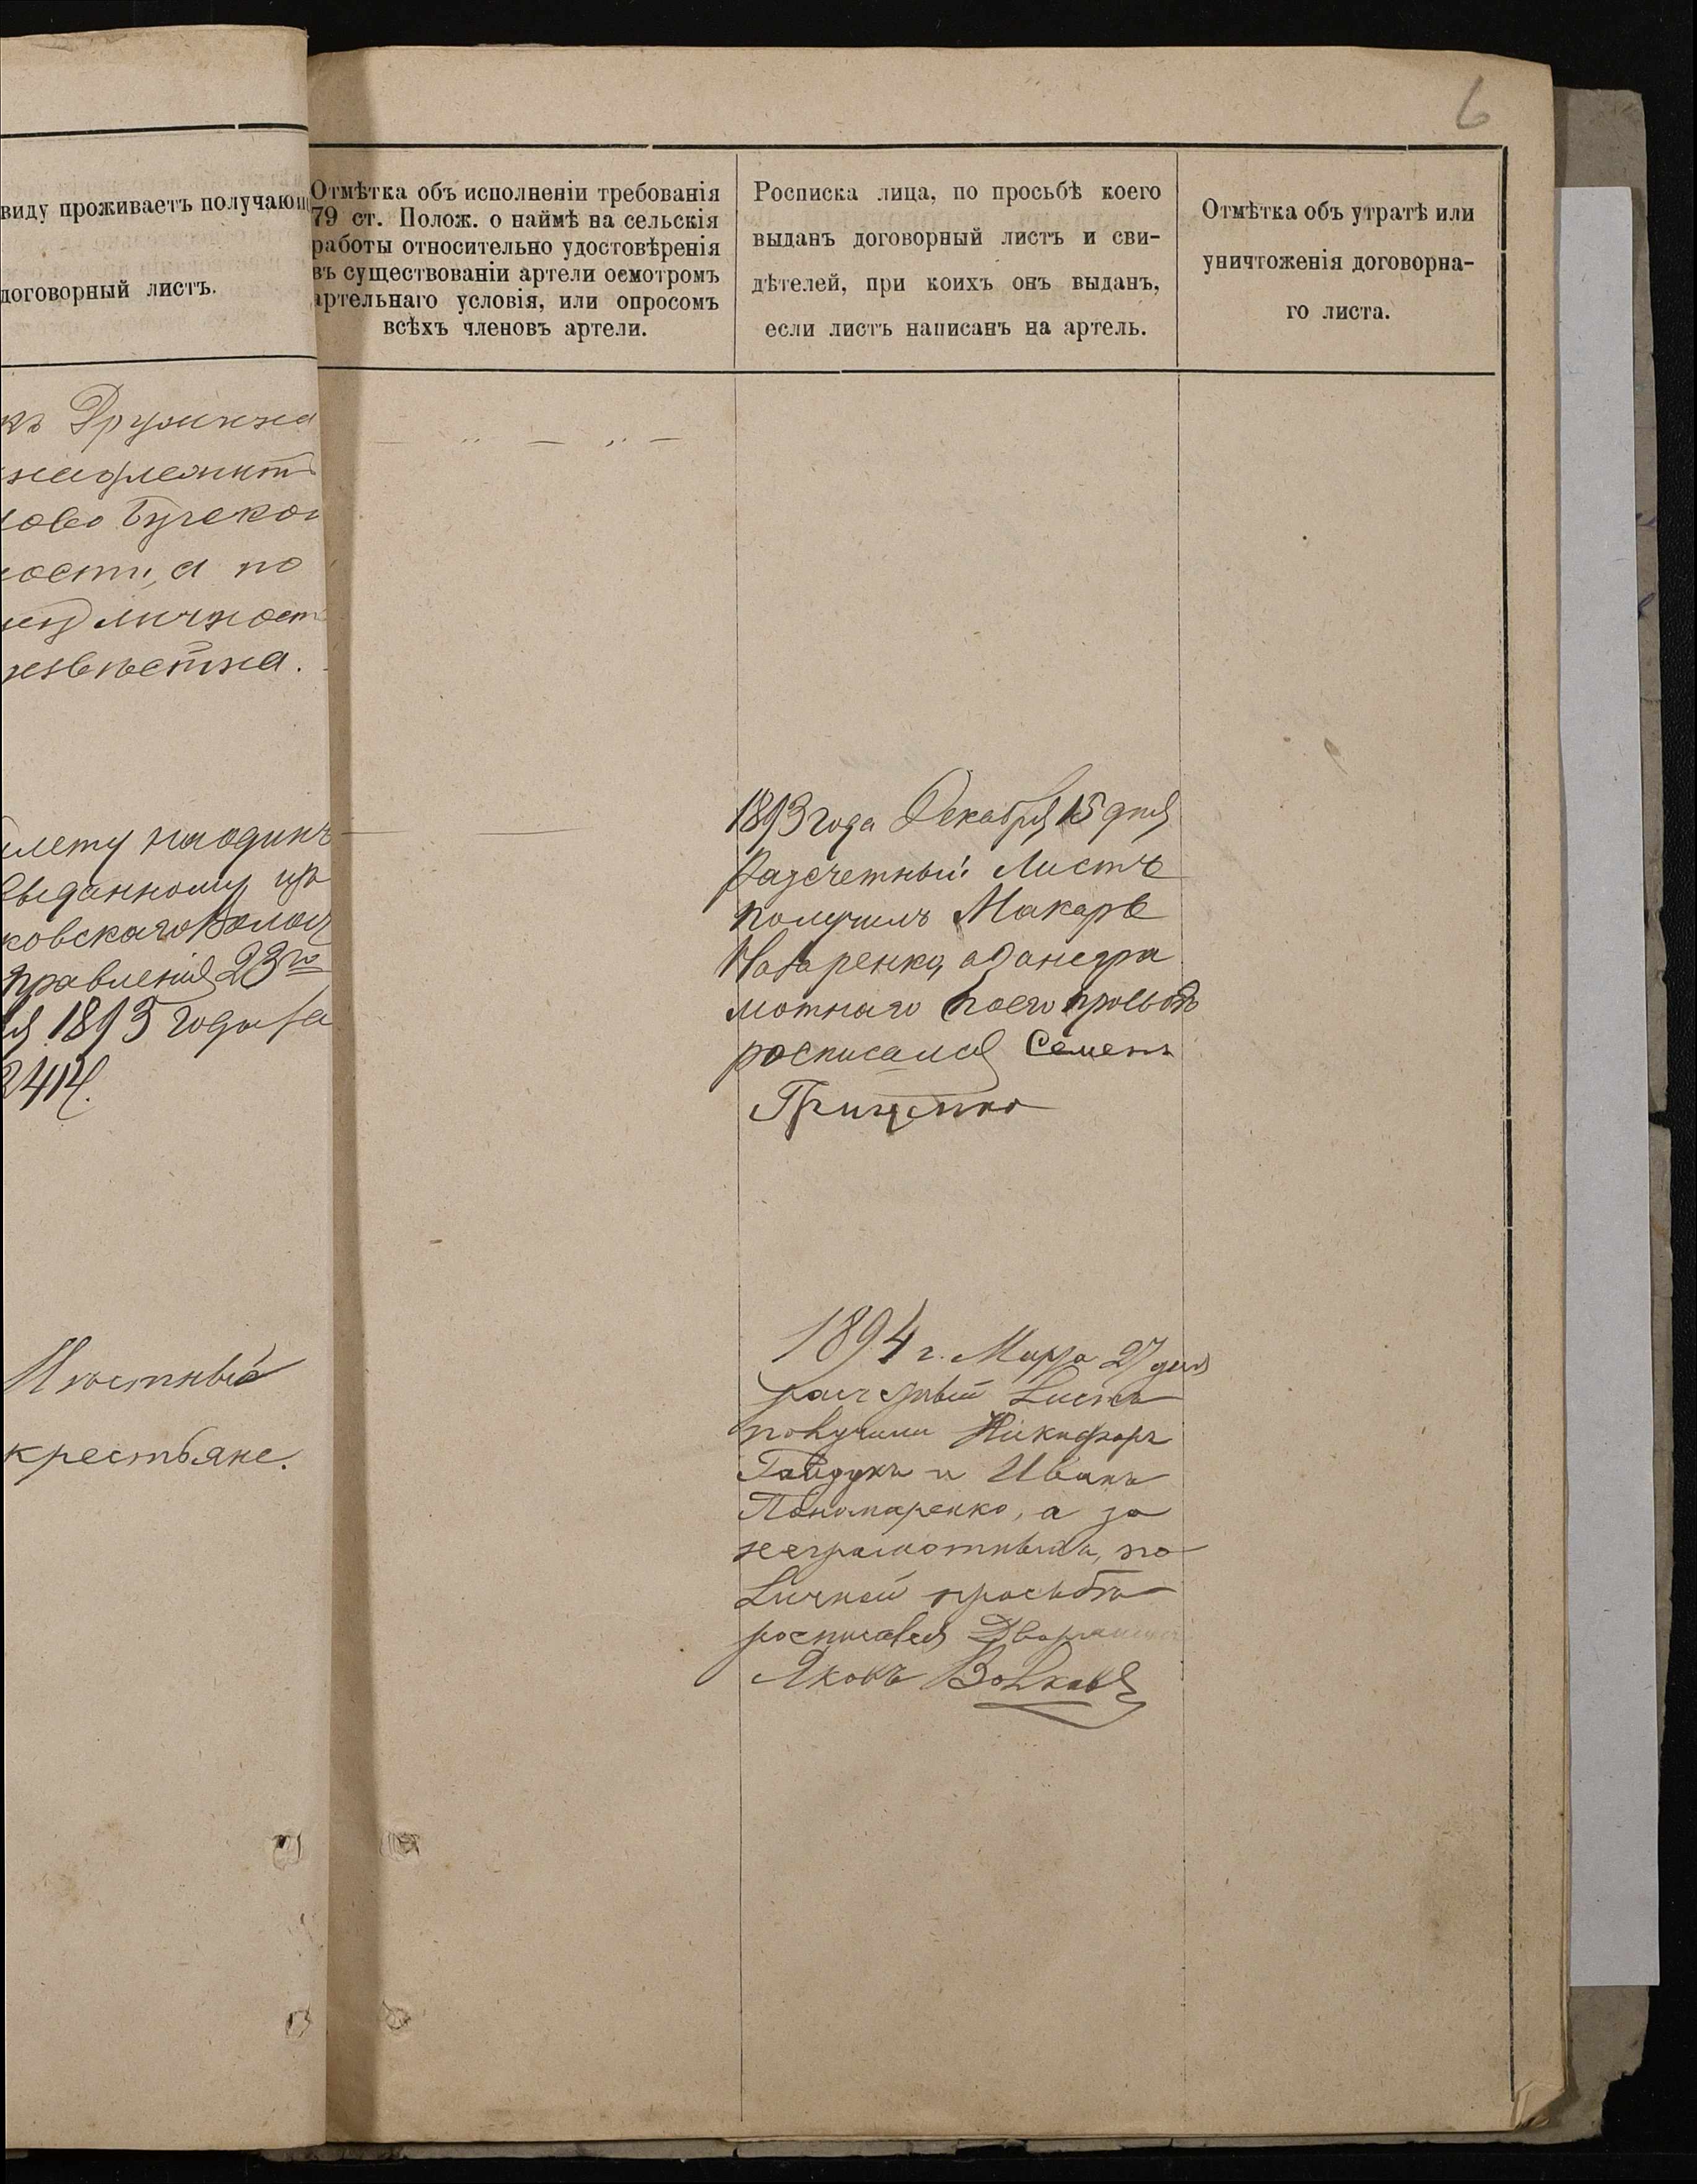 6
виду проживаетъ получающ
договорный листъ.
Отмѣтка объ исполненіи требованія
79 ст. Полож. о наймѣ на сельскія
работы относительно удостовѣренія
въ существованіи артели осмотромъ
артельнаго условія, или опросомъ
всѣхъ членовъ артели.
Росписка лица, по просьбѣ коего
выданъ договорный листъ и сви-
дѣтелей, при коихъ онъ выданъ,
если листъ написанъ на артель.
Отмѣтка объ утратѣ или
уничтоженія договорна-
го листа.
ости, а по
личност
извѣстна.
— „ — „ —
илету на одинъ
выданному изъ
ковскаго Волос
правленія 23го
1893 года за
2414.
Мѣстные
крестьяне.
1893 года Декабря 15 дня
Разсчетный Листъ
получилъ Макаръ
Назаренко, а за негра
мотнаго по его прозьбѣ
росписался Семенъ
Грищенко
1894 г. Марта 27 дня
расчетный Листъ
получили Никифоръ
Гайдукъ и Иванъ
Пономаренко, а за
неграмотныхъ, по
Личной просьбѣ
росписался Дворянинъ
Яковъ Волковъ